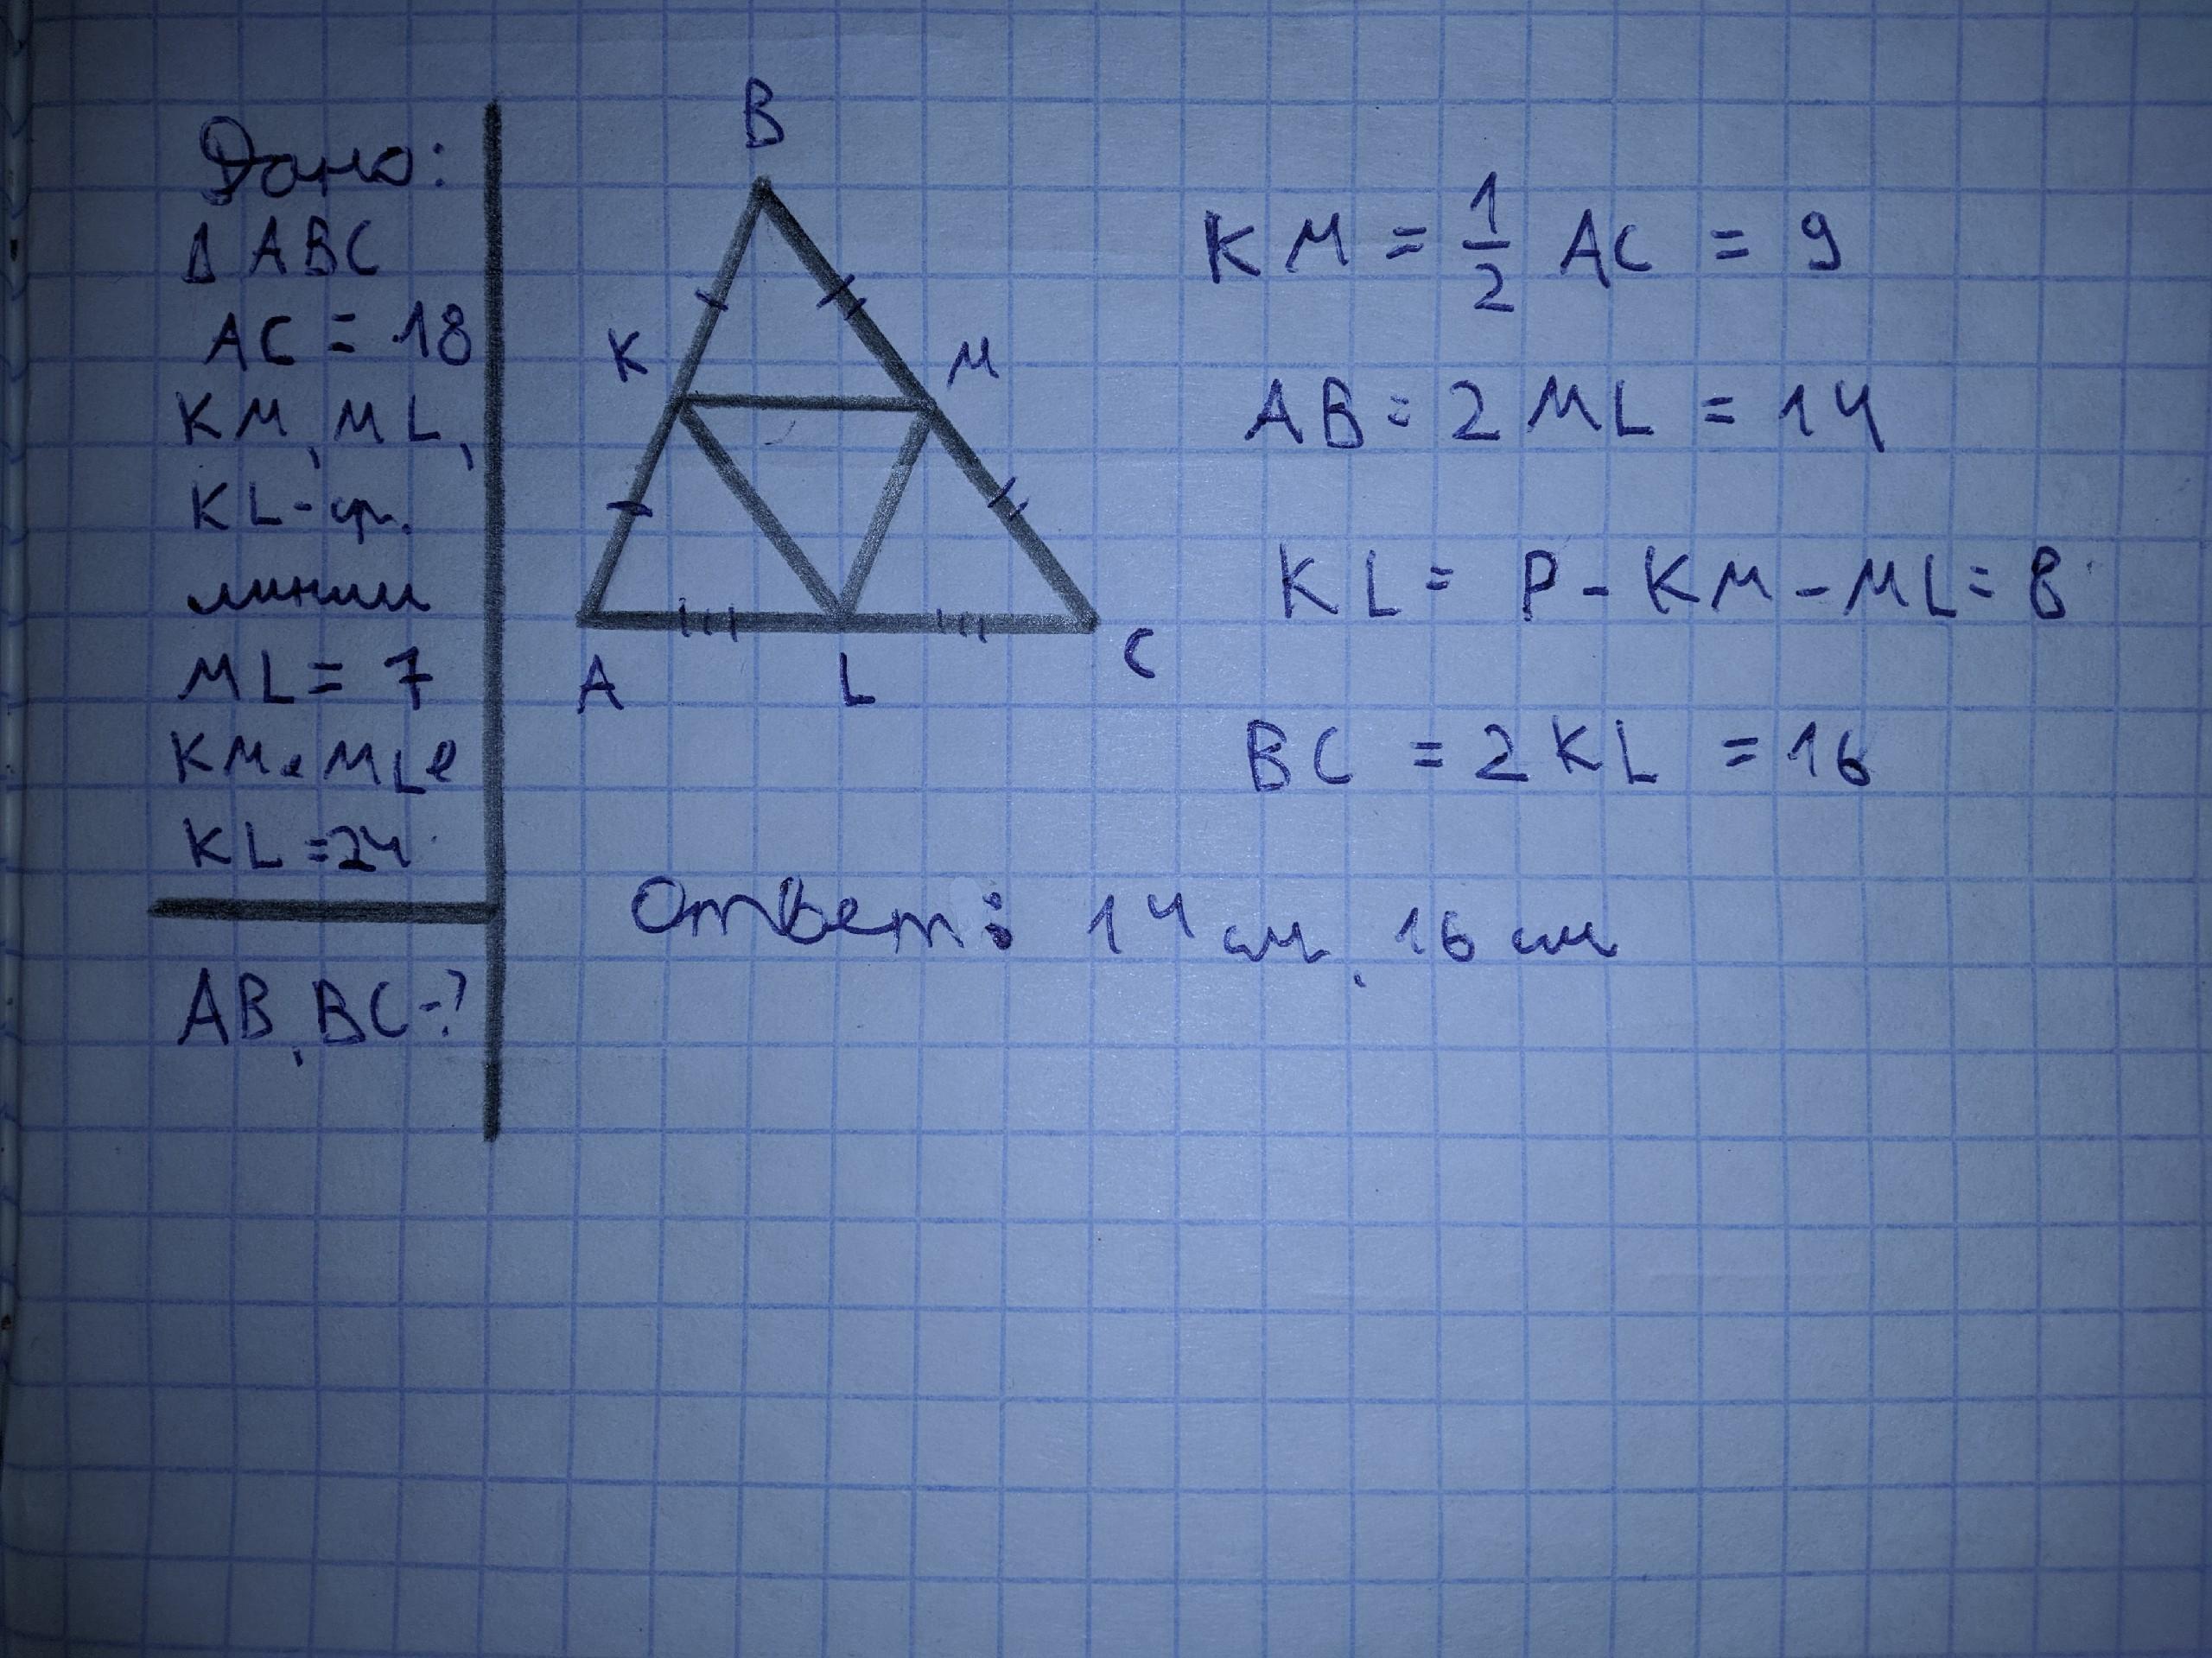 Дано:
Δ ABC
AC = 18
KM, ML,
KL - ср.
линии
ML = 7
KM + ML +
KL = 24
AB, BC - ?
B
K
M
A
L
C
KM = 1/2 AC = 9
AB = 2 ML = 14
KL = P - KM - ML = 8
BC = 2 KL = 16
Ответ: 14 см, 16 см